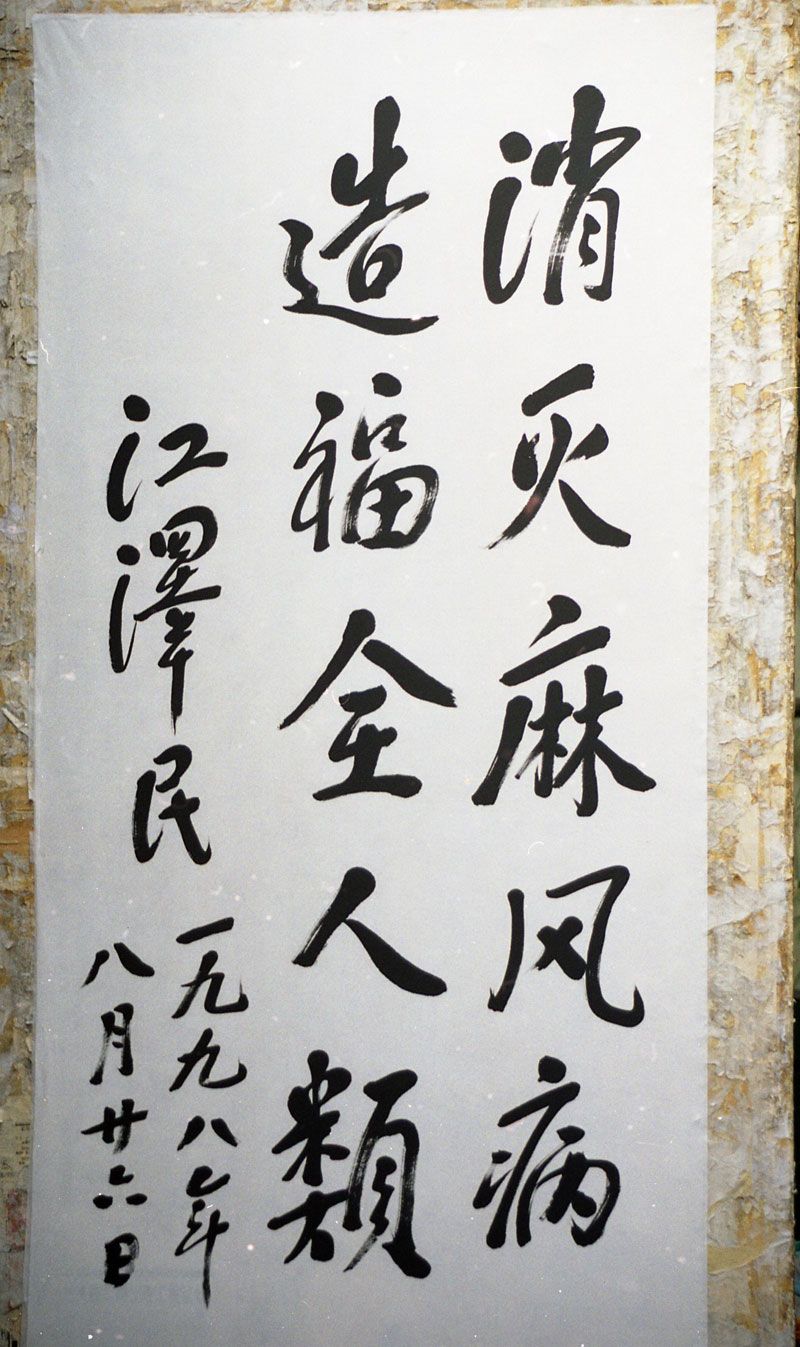 消灭麻风病
造福全人類
江澤民
一九九八年
八月廿六日